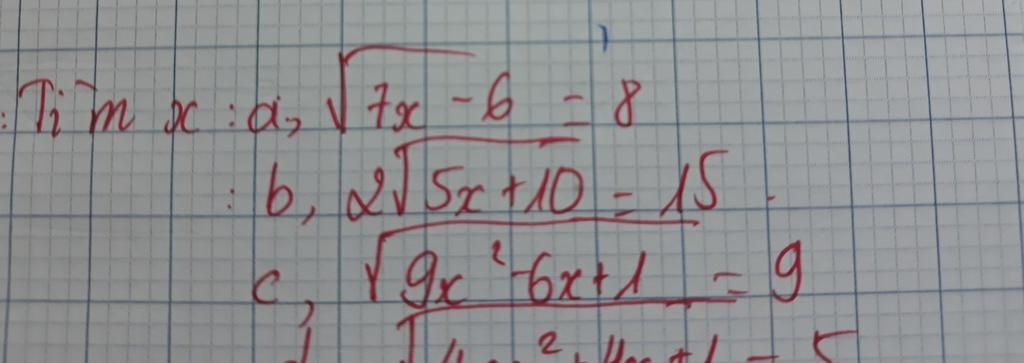 : Tìm x : a, √7x - 6 = 8
: b, 2√5x+10 = 15.
c, √9x²-6x+1 = 9